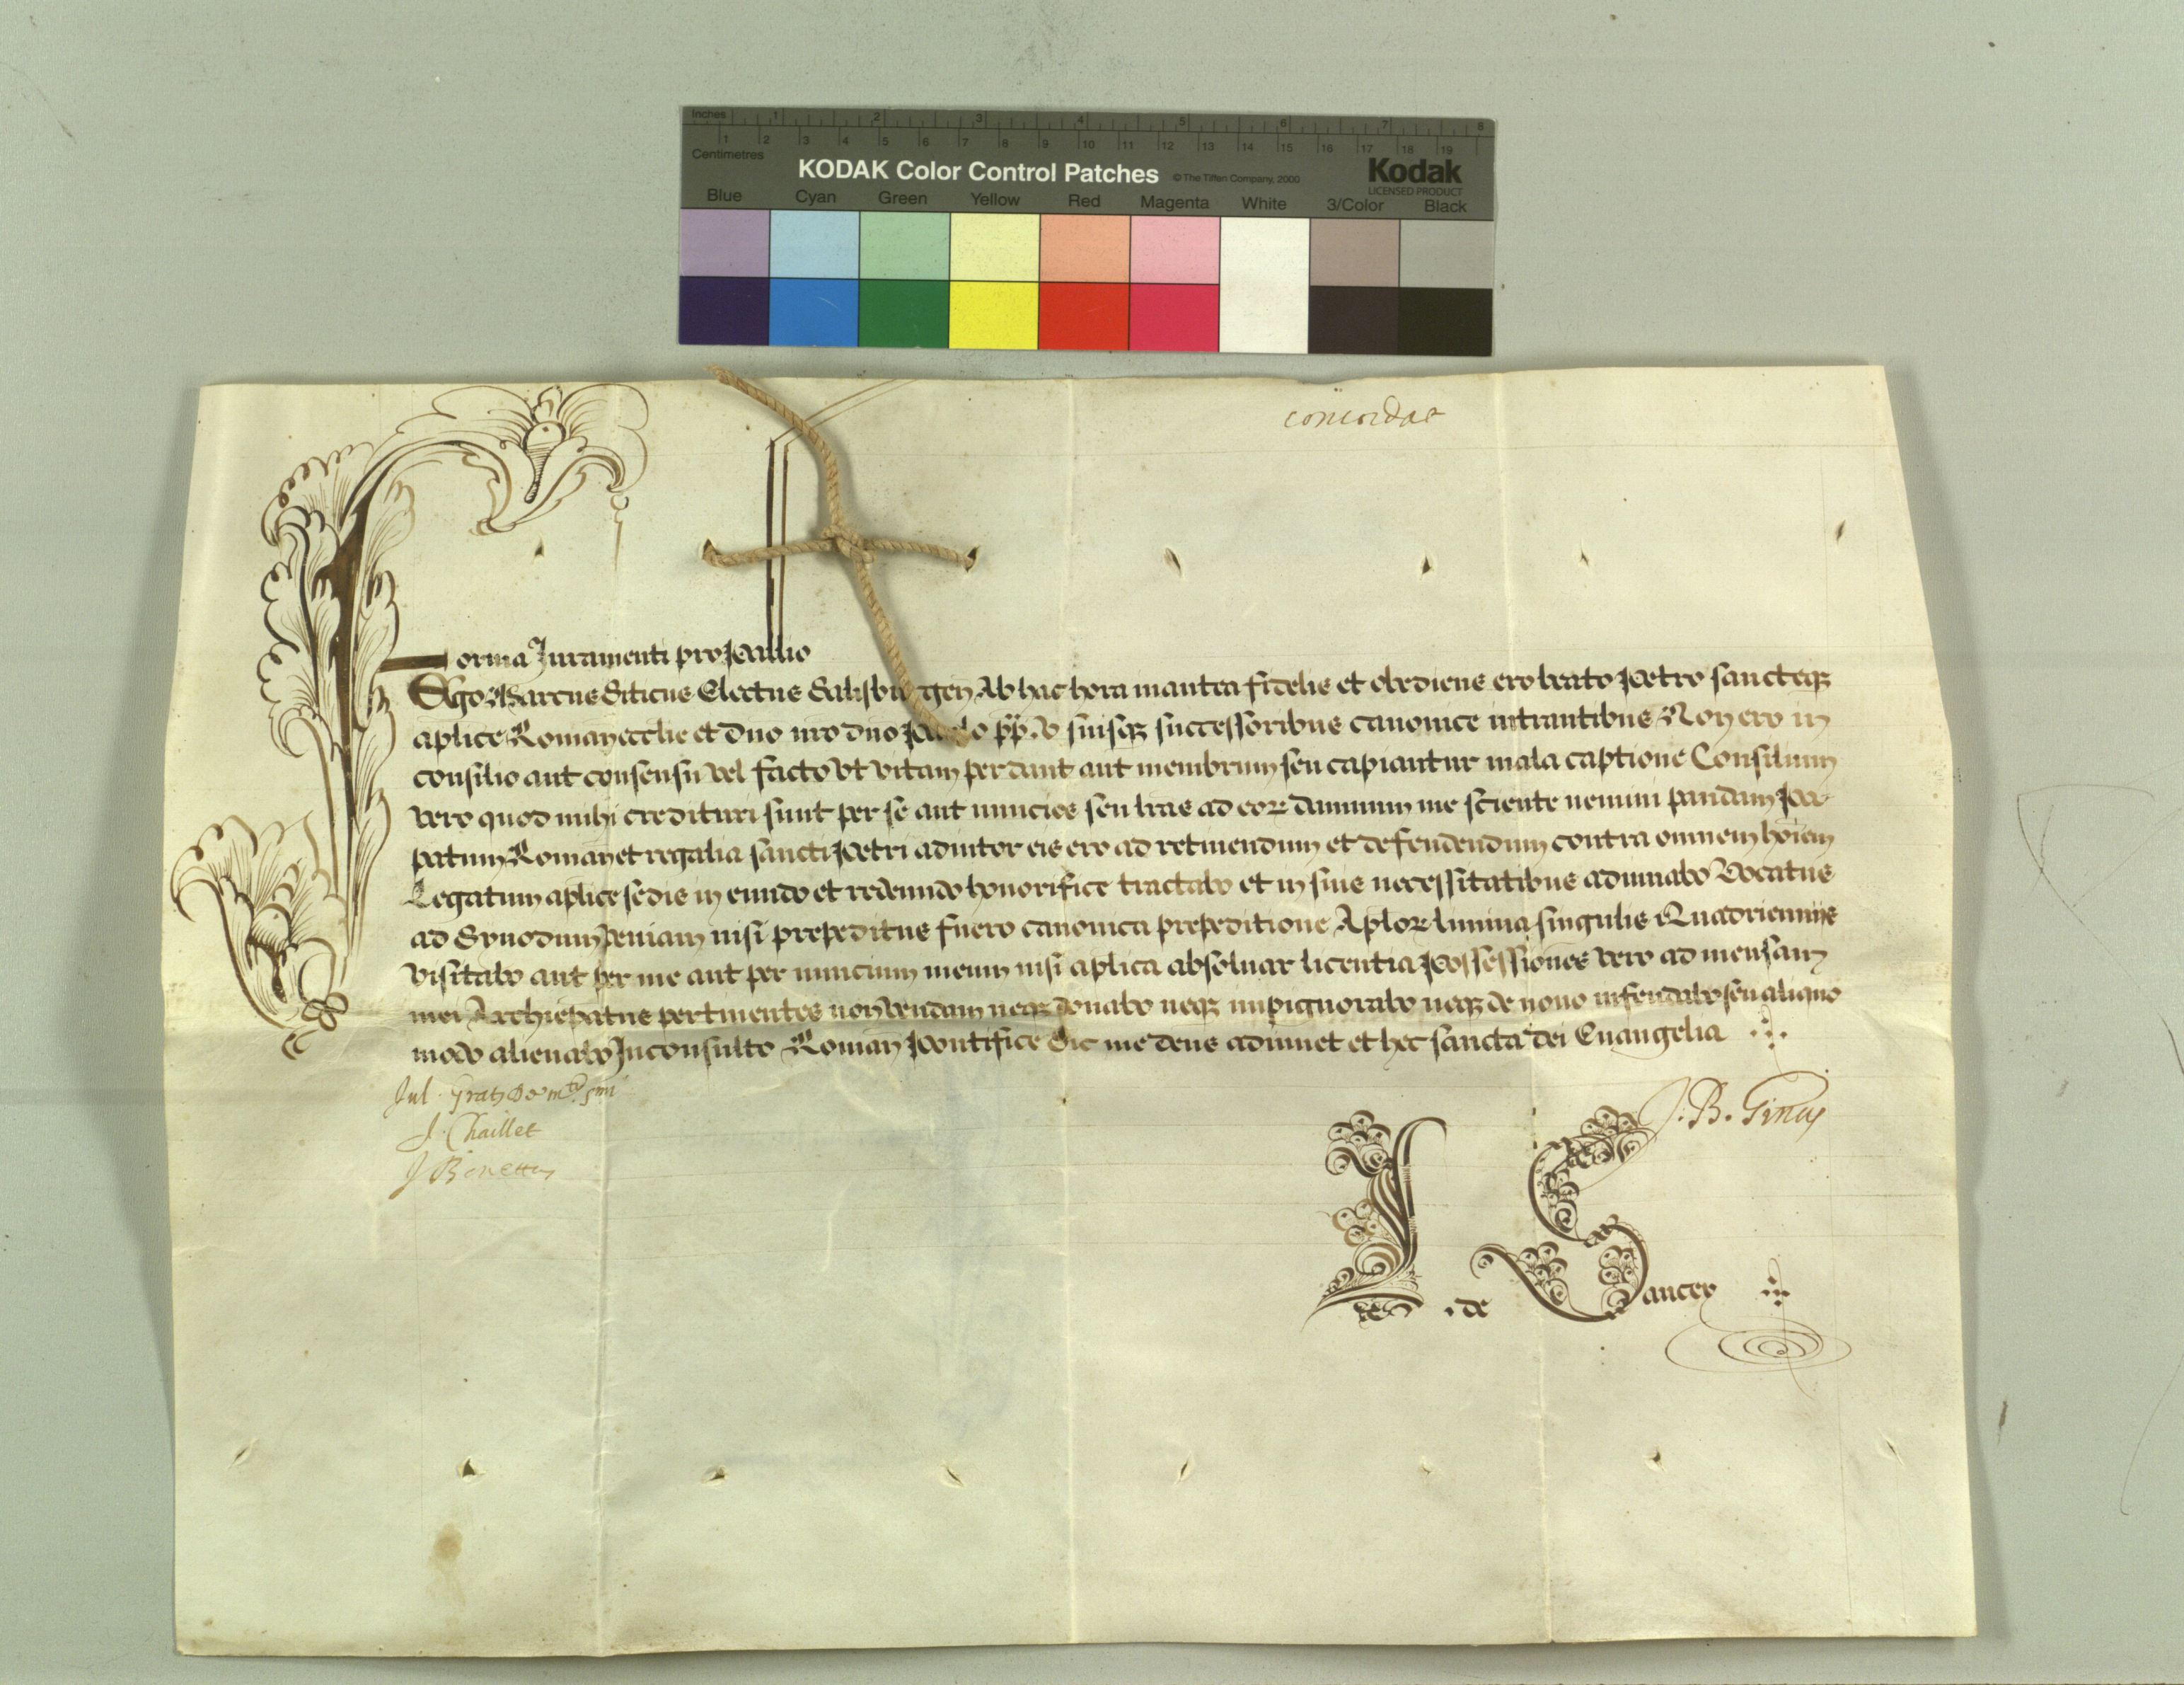 Inches 1 2 3 4 5 6 7 8
Centimetres 1 2 3 4 5 6 7 8 9 10 11 12 13 14 15 16 17 18 19
KODAK Color Control Patches © The Tiffen Company, 2000 Kodak
LICENSED PRODUCT
Blue Cyan Green Yellow Red Magenta White 3/Color Black
concordat
Forma Juramenti pro Pallio
Ego Marcus Siticus Electus Salisburgen Ab hac hora in antea fidelis et obediens ero beato Petro sancteqz
aplice Romane ecclie et Dno nro dno Paulo pp. v suisqz successoribus canonice intrantibus Non ero in
consilio aut consensu vel facto vt vitam perdant aut membrum seu capiantur mala captione Consilium
vero quod mihi credituri sunt per se aut nuncios seu lras ad eorz damnum me sciente nemini pandam Pa
patum Roman et regalia sancti Petri adiutor eis ero ad retinendum et defendendum contra omnem hoiem
Legatum aplice sedis in eundo et redeundo honorifice tractabo et in suis necessitatibus adiuuabo Vocatus
ad Synodum veniam nisi prepeditus fuero canonica prepeditione Aplorz limina singulis Quadrienniis
visitabo aut per me aut per nuncium meum nisi aplica absoluar licentia Possessiones vero ad mensam
mei Archiepatus pertinentes non vendam neqz donabo neqz impignorabo neqz de nouo infeudabo seu aliquo
modo alienabo Inconsulto Roman Pontifice Sic me deus adiuuet et hec sancta dei Euangelia
Jul.
J. Chaillet
J Bonettus
J. B.
J. de Sancey